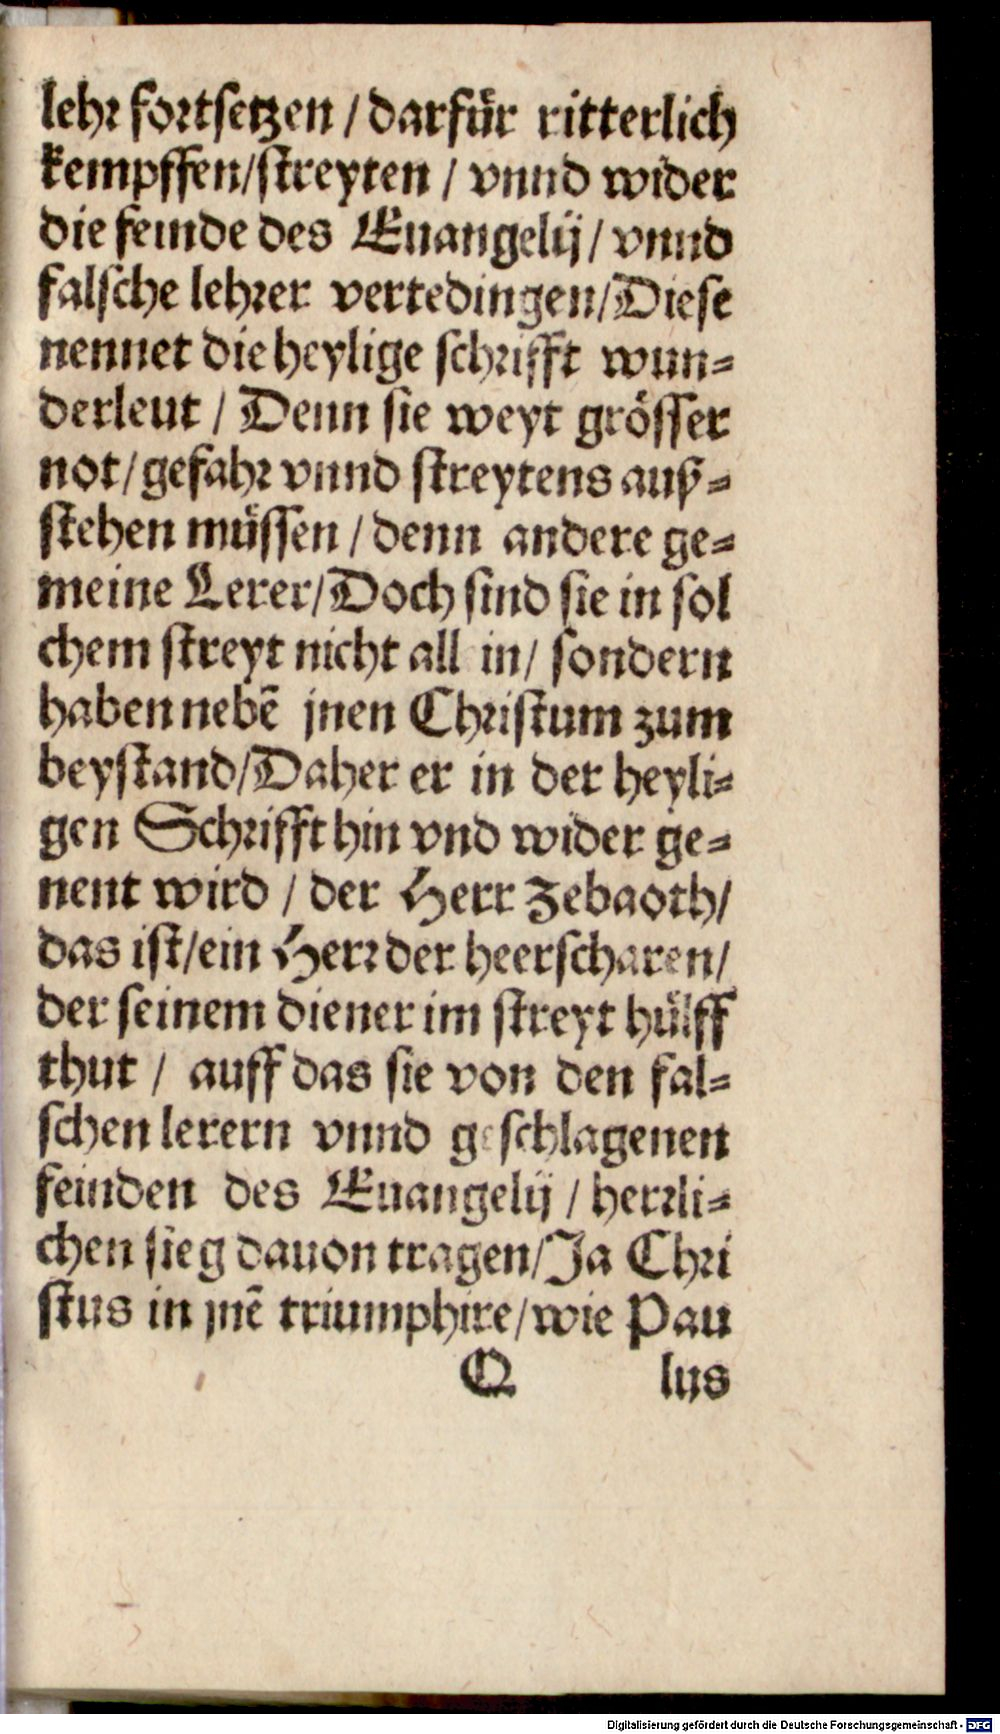 lehr fortsetzen / darfuͤr ritterlich
kempffen/streyten / vnnd wider
die feinde des Euangelij / vnnd
falsche lehrer vertedingen/Diese
nennet die heylige schrifft wun⸗
derleut / Denn sie weyt groͤsser
not/gefahr vnnd streytens auß⸗
stehen muͤssen / denn andere ge⸗
meine Lerer/Doch sind sie in sol
chem streyt nicht all in/ sondern
haben nebẽ jnen Christum zum
beystand/Daher er in der heyli⸗
gen Schrifft hin vnd wider ge⸗
nent wird / der Herr Zebaoth/
das ist/ein Herr der heerscharen/
der seinem diener im streyt huͤlff
thut / auff das sie von den fal⸗
schen lerern vnnd geschlagenen
feinden des Euangelij / herrli⸗
chen sieg dauon tragen/Ja Chri
stus in jnẽ triumphire/wie Pau
Q lus
Digitalisierung gefördert durch die Deutsche Forschungsgemeinschaft - DFG